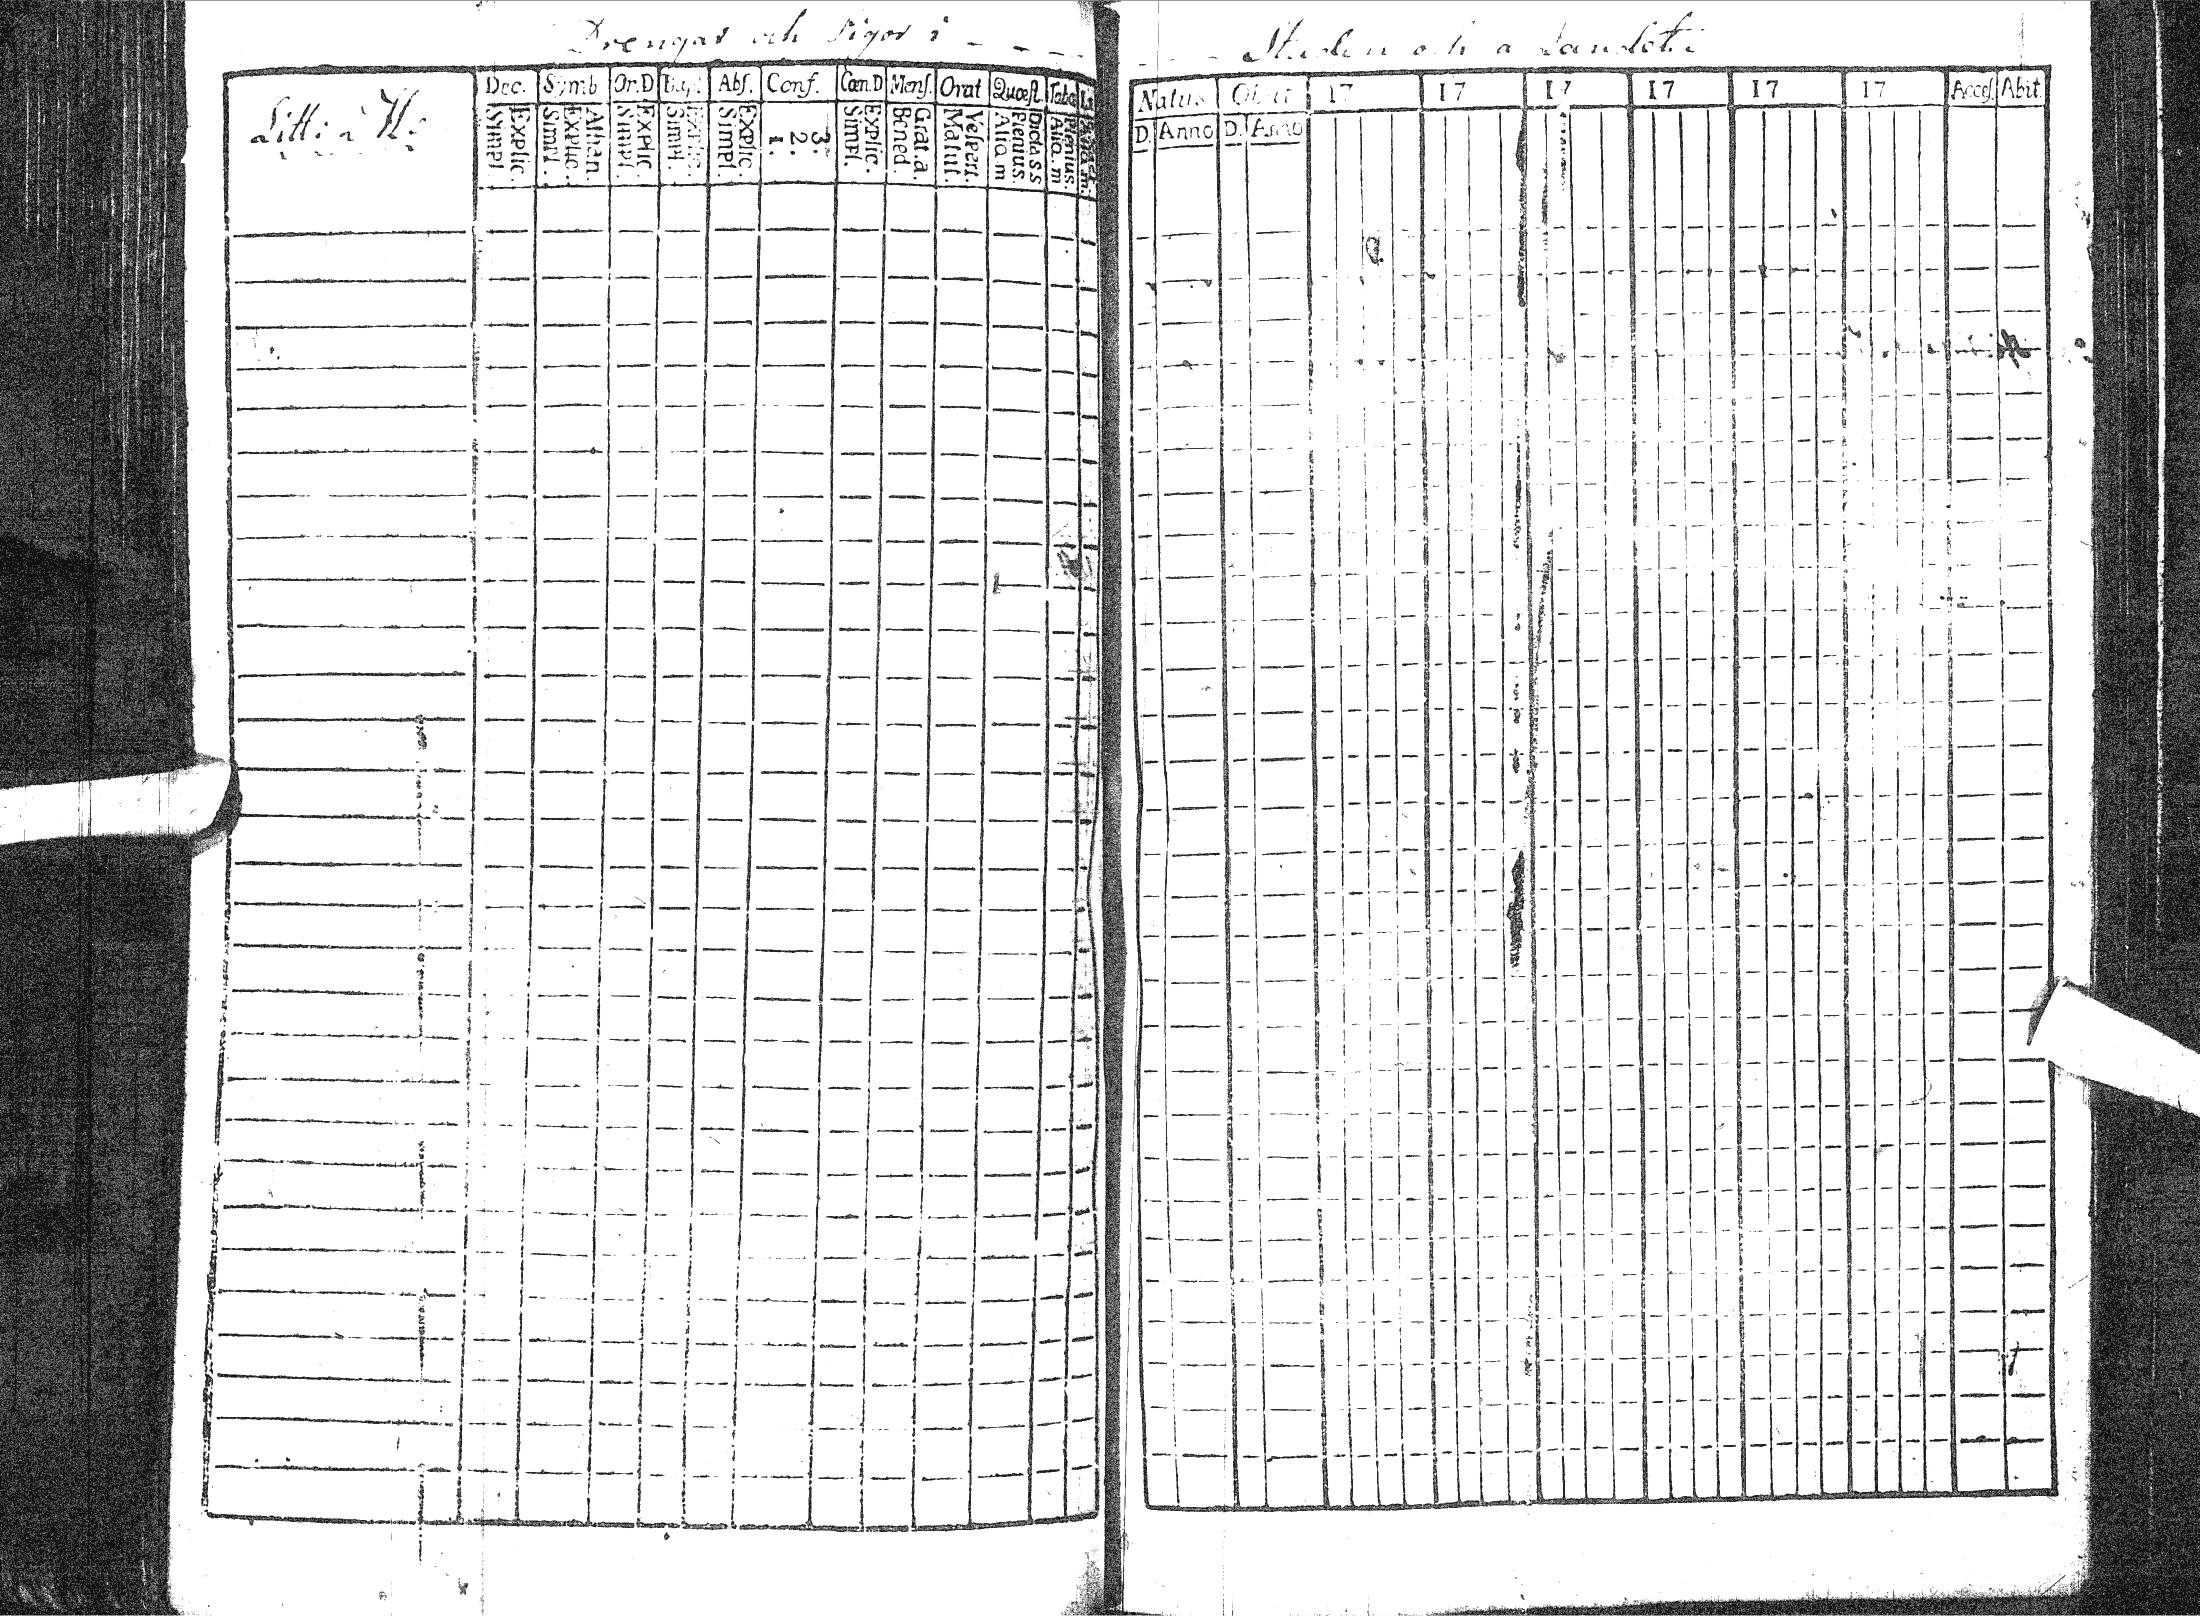 Drengar och Pigor i - - - -
- - - Staden och a Landet
Litt: à H:
Dec. Symb Or.D Bapt Abs. Conf. Cœn.D Mens. Orat Quæst Tab
Simpl. Explic. Simpl. Explic. Athan. Simpl. Explic. Simpl. Explic. Simpl. Explic. 1. 2. 3. Simpl. Explic. Bened. Grat.a. Matut. Vespert. Alia.m Plenius. Dicta s.s Alia.m Plenius.
Natus Obiit 17 17 17 17 17 17 Access Abit
D. Anno D. Anno